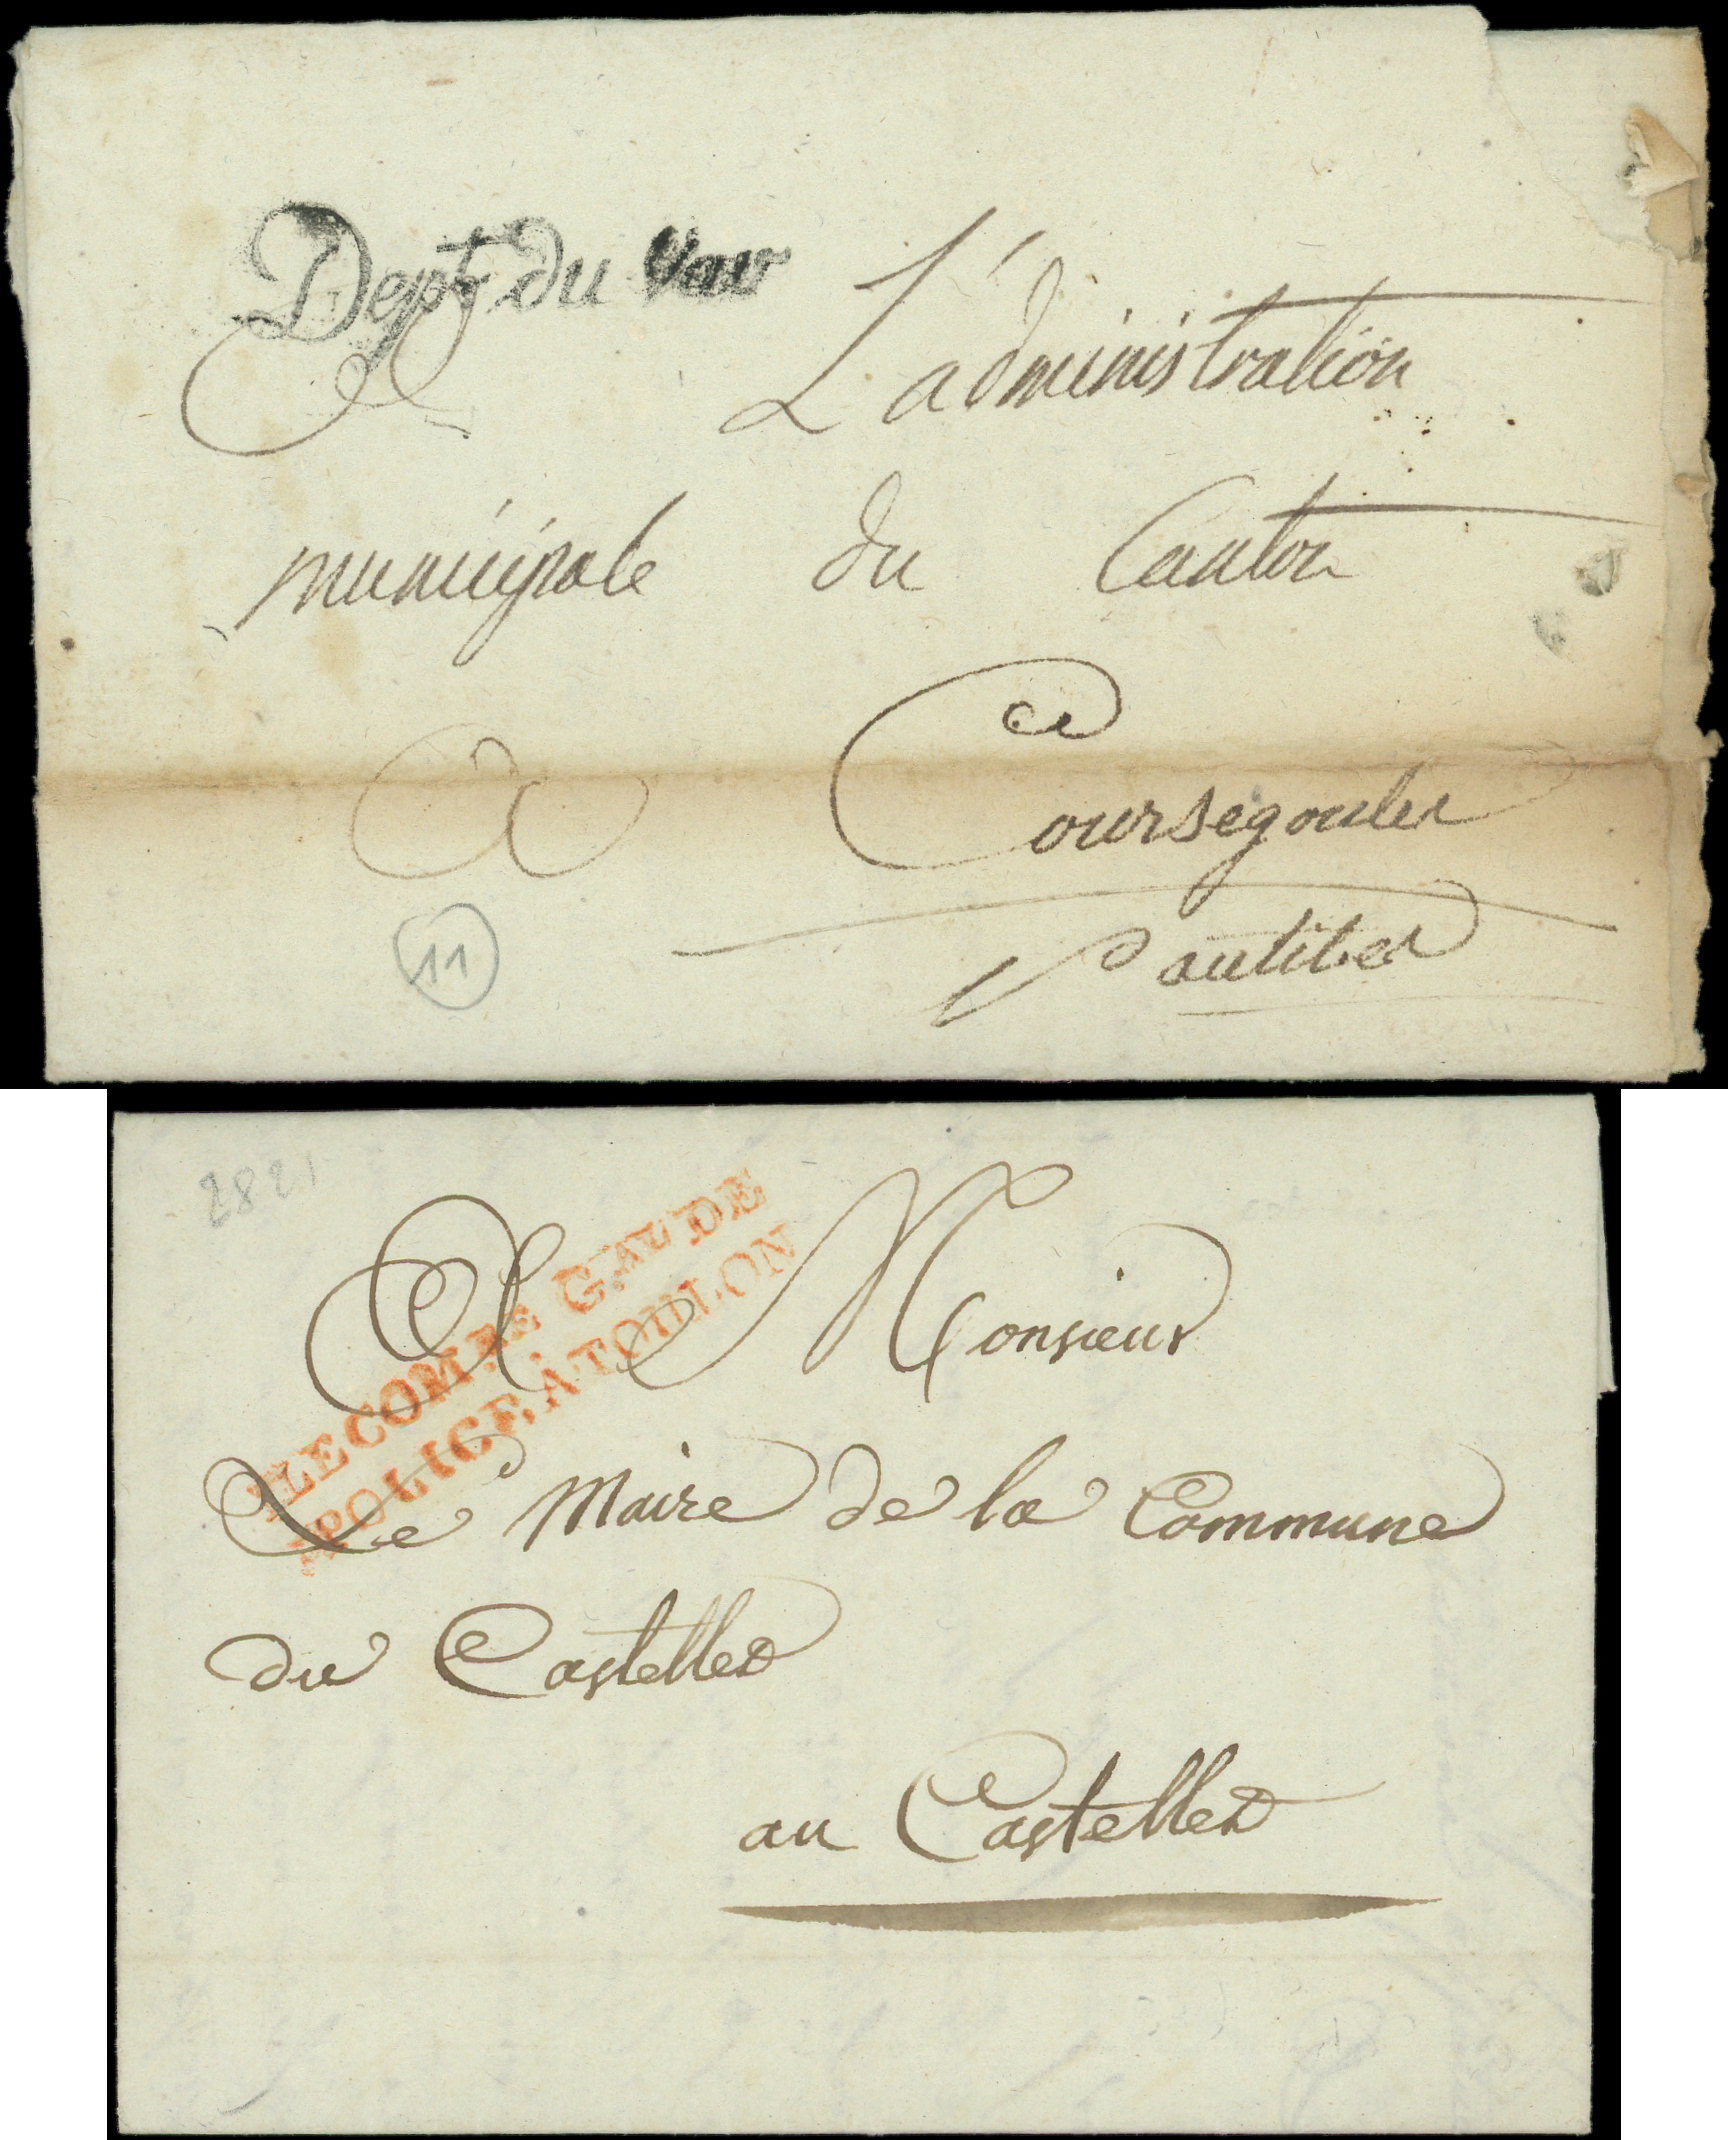 Dept. du Var
A L'administration
municipale du Canton
A Coursegoules
11
p antibes
2821
LE COMRE. GAL. DE
POLICE À TOULON
A Monsieur
Le Maire de la Commune
du Castellet
au Castellet